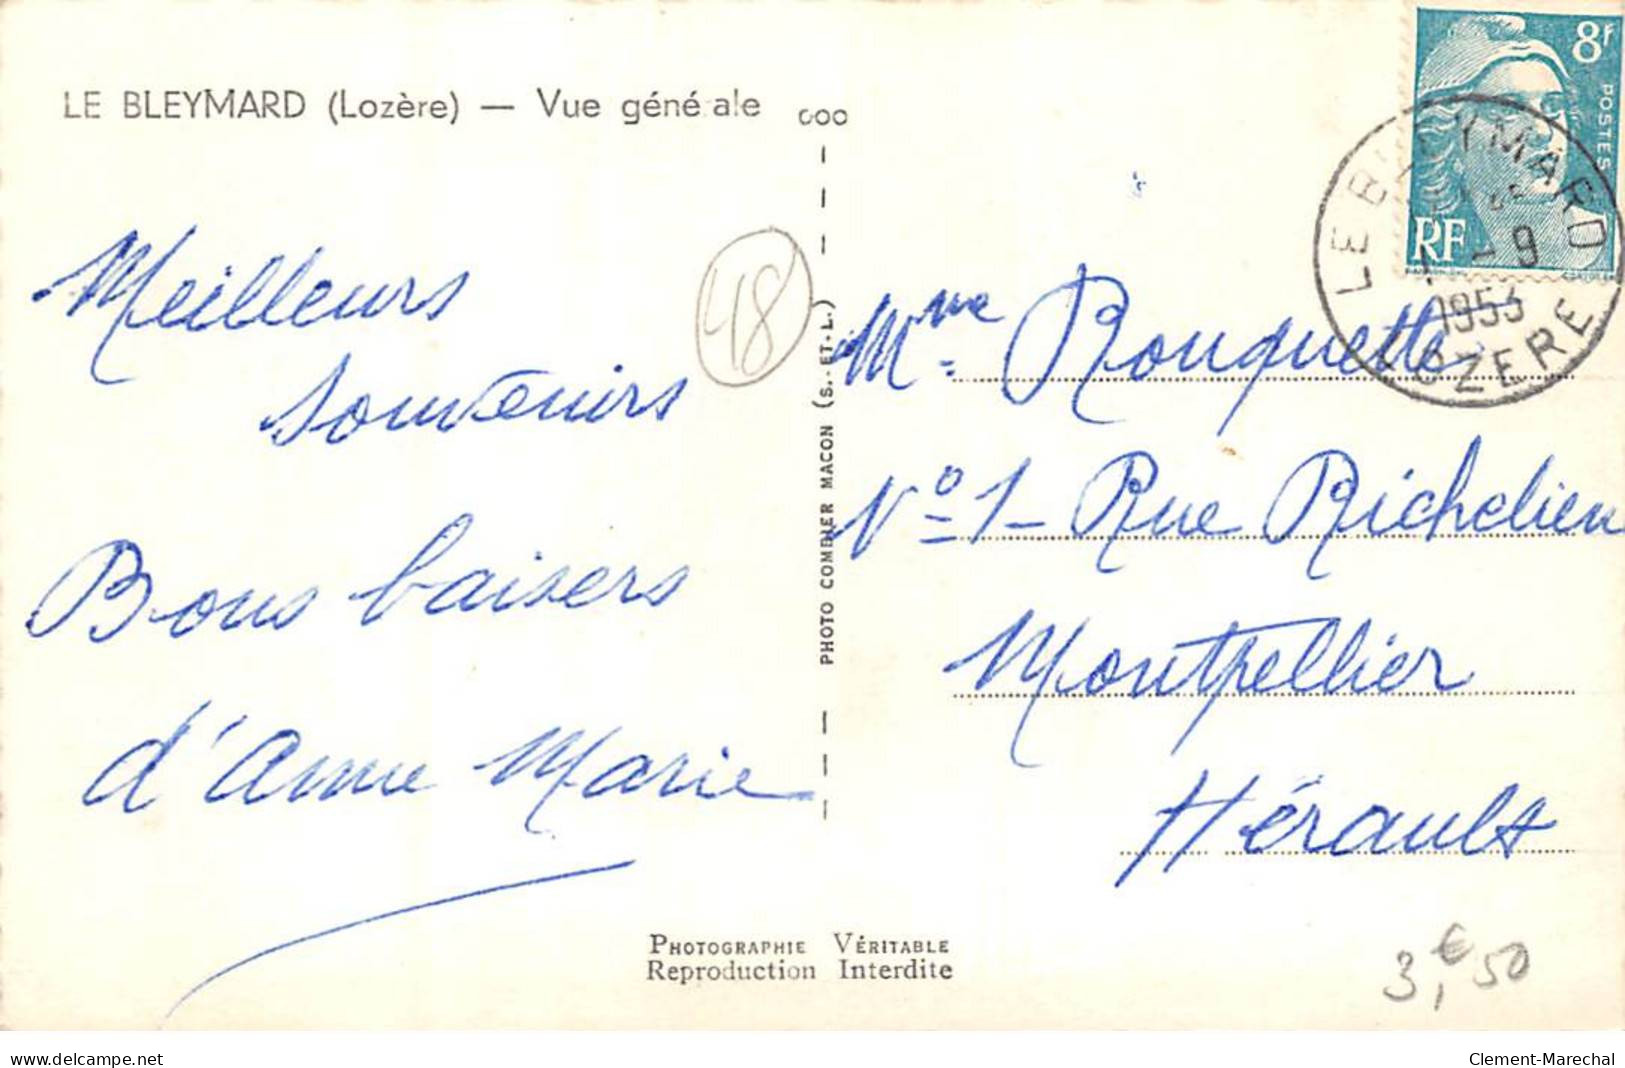 LE BLEYMARD (Lozère) — Vue géné ale
Meilleurs
souvenirs
Bons baisers
d'Anne Marie
48
PHOTO COMBIER MACON (S.-ET-L.)
8F
POSTES
RF
LE BLEYMARD
-9
1953
LOZERE
Mme Rouquette
N° 1 - Rue Richelieu
Montpellier
Hérault
PHOTOGRAPHIE VÉRITABLE
Reproduction Interdite
3,€50
www.delcampe.net
Clement-Marechal